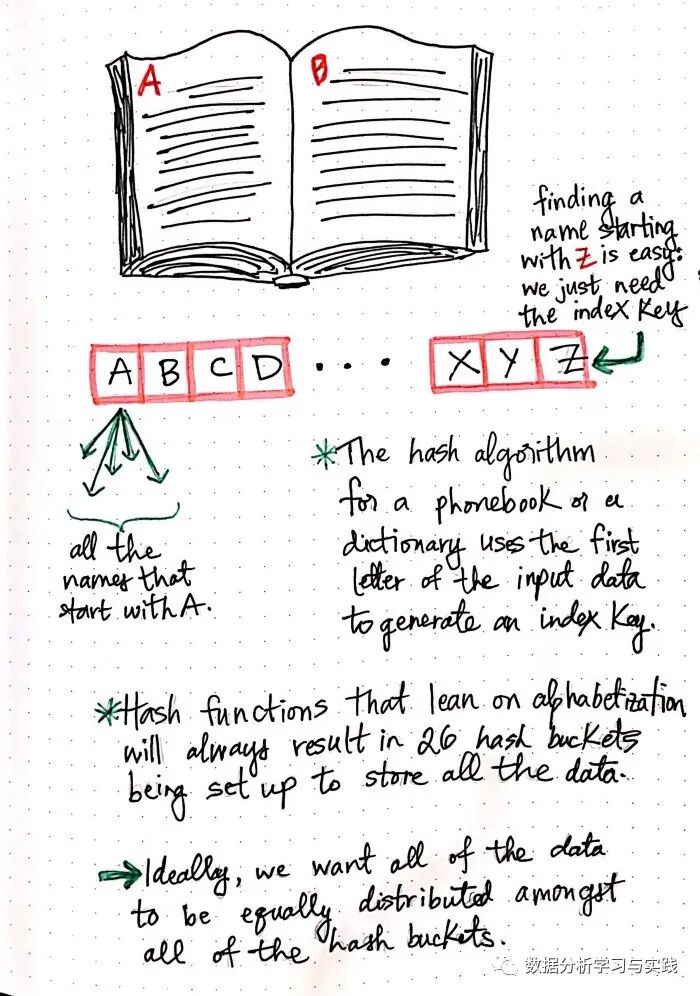 A
B
finding a
name starting
with Z is easy:
we just need
the index key
A B C D . . . . X Y Z
all the
names that
start with A.
*The hash algorithm
for a phonebook or a
dictionary uses the first
letter of the input data
to generate an index key.
*Hash functions that lean on alphabetization
will always result in 26 hash buckets
being set up to store all the data.
→Ideally, we want all of the data
to be equally distributed amongst
all of the hash buckets.
数据分析学习与实践